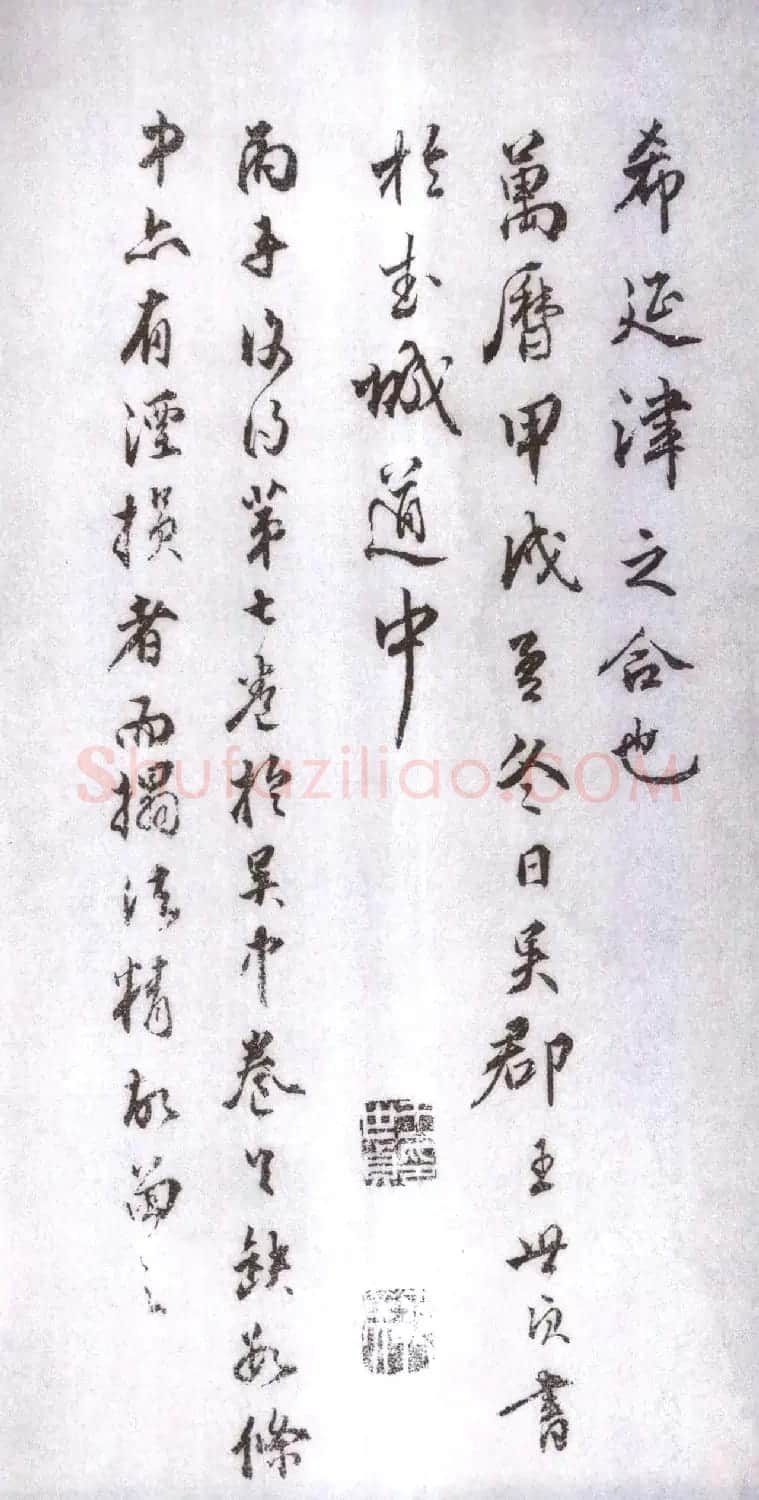 希延津之合也
萬曆甲戌至冬日吳郡王世貞書
於鄆城道中
丙子復得第七卷於吳中卷尾缺數條
中亦有湮損者而搨法精故留之
Shufaziliao.COM